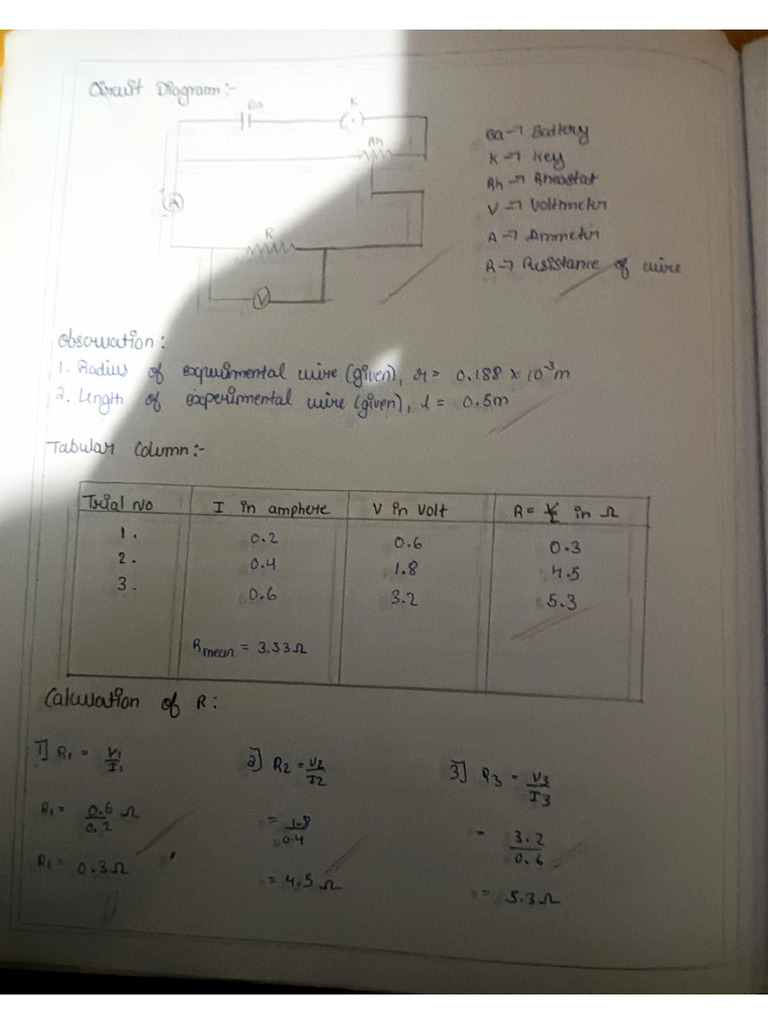 Circuit Diagram:-
Ba
K
Rh
A
R
V
Ba → Battery
K → Key
Rh → Rheostat
V → Voltmeter
A → Ammeter
R → Resistance of wire
Observation:
1. Radius of experimental wire (given), r = 0.188 × 10⁻³ m
2. Length of experimental wire (given), l = 0.5m
Tabular Column:-
Trial No I in amphere V in Volt R = V/I in Ω
1. 0.2 0.6 0.3
2. 0.4 1.8 4.5
3. 0.6 3.2 5.3
Rmean = 3.33Ω
Calculation of R:
1] R₁ = V₁/I₁ 2] R2 = V2/I2 3] R3 = V3/I3
R₁ = 0.6/0.2 Ω = 1.8/0.4 = 3.2/0.6
R₁ = 0.3Ω = 4.5 Ω = 5.3Ω